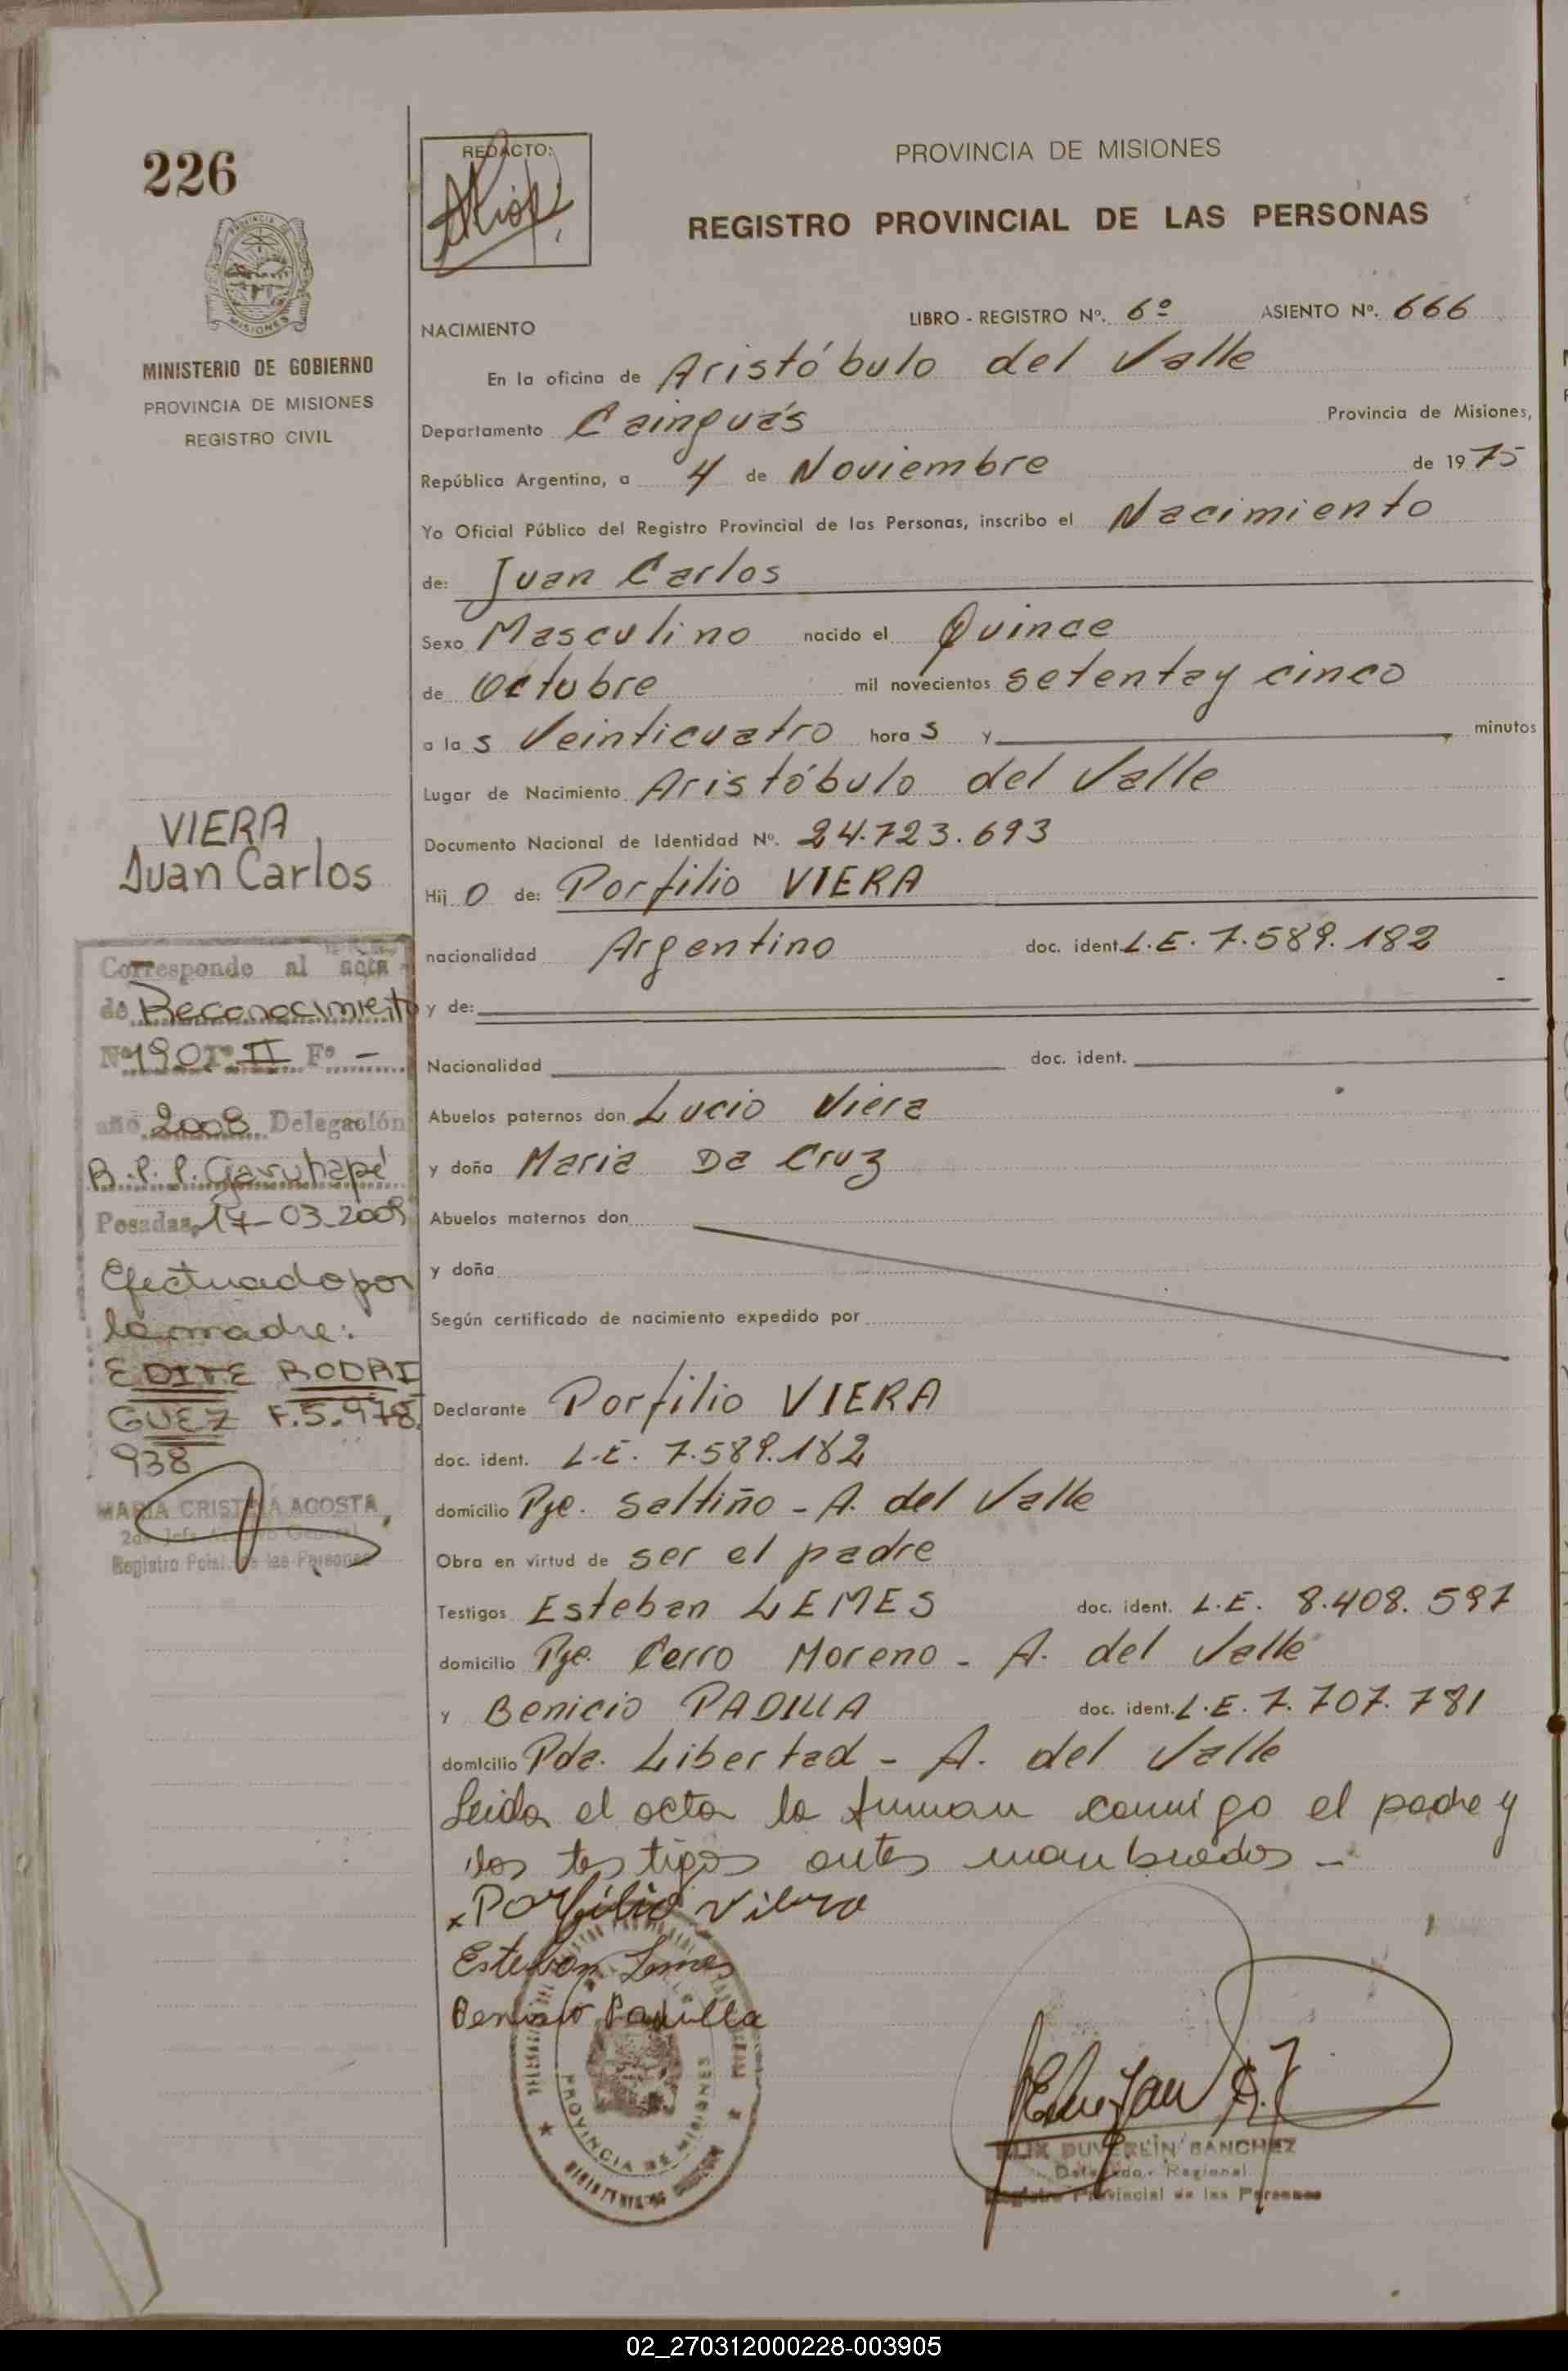 226
REDACTO:
PROVINCIA DE MISIONES
REGISTRO PROVINCIAL DE LAS PERSONAS
PROVINCIA DE
MISIONES
MINISTERIO DE GOBIERNO
PROVINCIA DE MISIONES
REGISTRO CIVIL
NACIMIENTO
LIBRO - REGISTRO Nº. 6º ASIENTO Nº. 666
En la oficina de Aristóbulo del Valle
Departamento Cainguás Provincia de Misiones,
República Argentina, a 4 de Noviembre de 1975
Yo Oficial Público del Registro Provincial de las Personas, inscribo el Nacimiento
de: Juan Carlos
Sexo Masculino nacido el Quince
de Octubre mil novecientos setenta y cinco
a las Veinticuatro horas y minutos
Lugar de Nacimiento Aristóbulo del Valle
Documento Nacional de Identidad Nº. 24.723.693
Hijo de: Porfilio VIERA
nacionalidad Argentino doc. ident. L.E. 7.589.182
y de:
Nacionalidad doc. ident.
Abuelos paternos don Lucio Viera
y doña Maria Da Cruz
Abuelos maternos don
y doña
Según certificado de nacimiento expedido por
Declarante Porfilio VIERA
doc. ident. L.E. 7.589.182
domicilio Pje. Saltiño - A. del Valle
Obra en virtud de ser el padre
Testigos Esteban LEMES doc. ident. L.E. 8.408.597
domicilio Pje. Cerro Moreno - A. del Valle
y Benicio PADILLA doc. ident. L.E. 7.707.781
domicilio Pda. Libertad - A. del Valle
Leida el acta la firman conmigo el padre y
los testigos antes nombrados -
x Porfilio Viera
Esteban Lemes
Benicio Padilla
PROVINCIA DE MISIONES
DUVERLIN SANCHEZ
Delegado Regional
Registro Provincial de las Personas
VIERA
Juan Carlos
Corresponde al acta
de Reconocimiento
Nº 190 Tº II Fº -
año 2008 Delegación
R.P.P. Garuhapé
Posadas, 17-03-2009
Efectuado por
la madre:
EDITE RODRI
GUEZ F.5.978.
938
MARIA CRISTINA ACOSTA
Registro Pcial. de las Personas
02_270312000228-003905